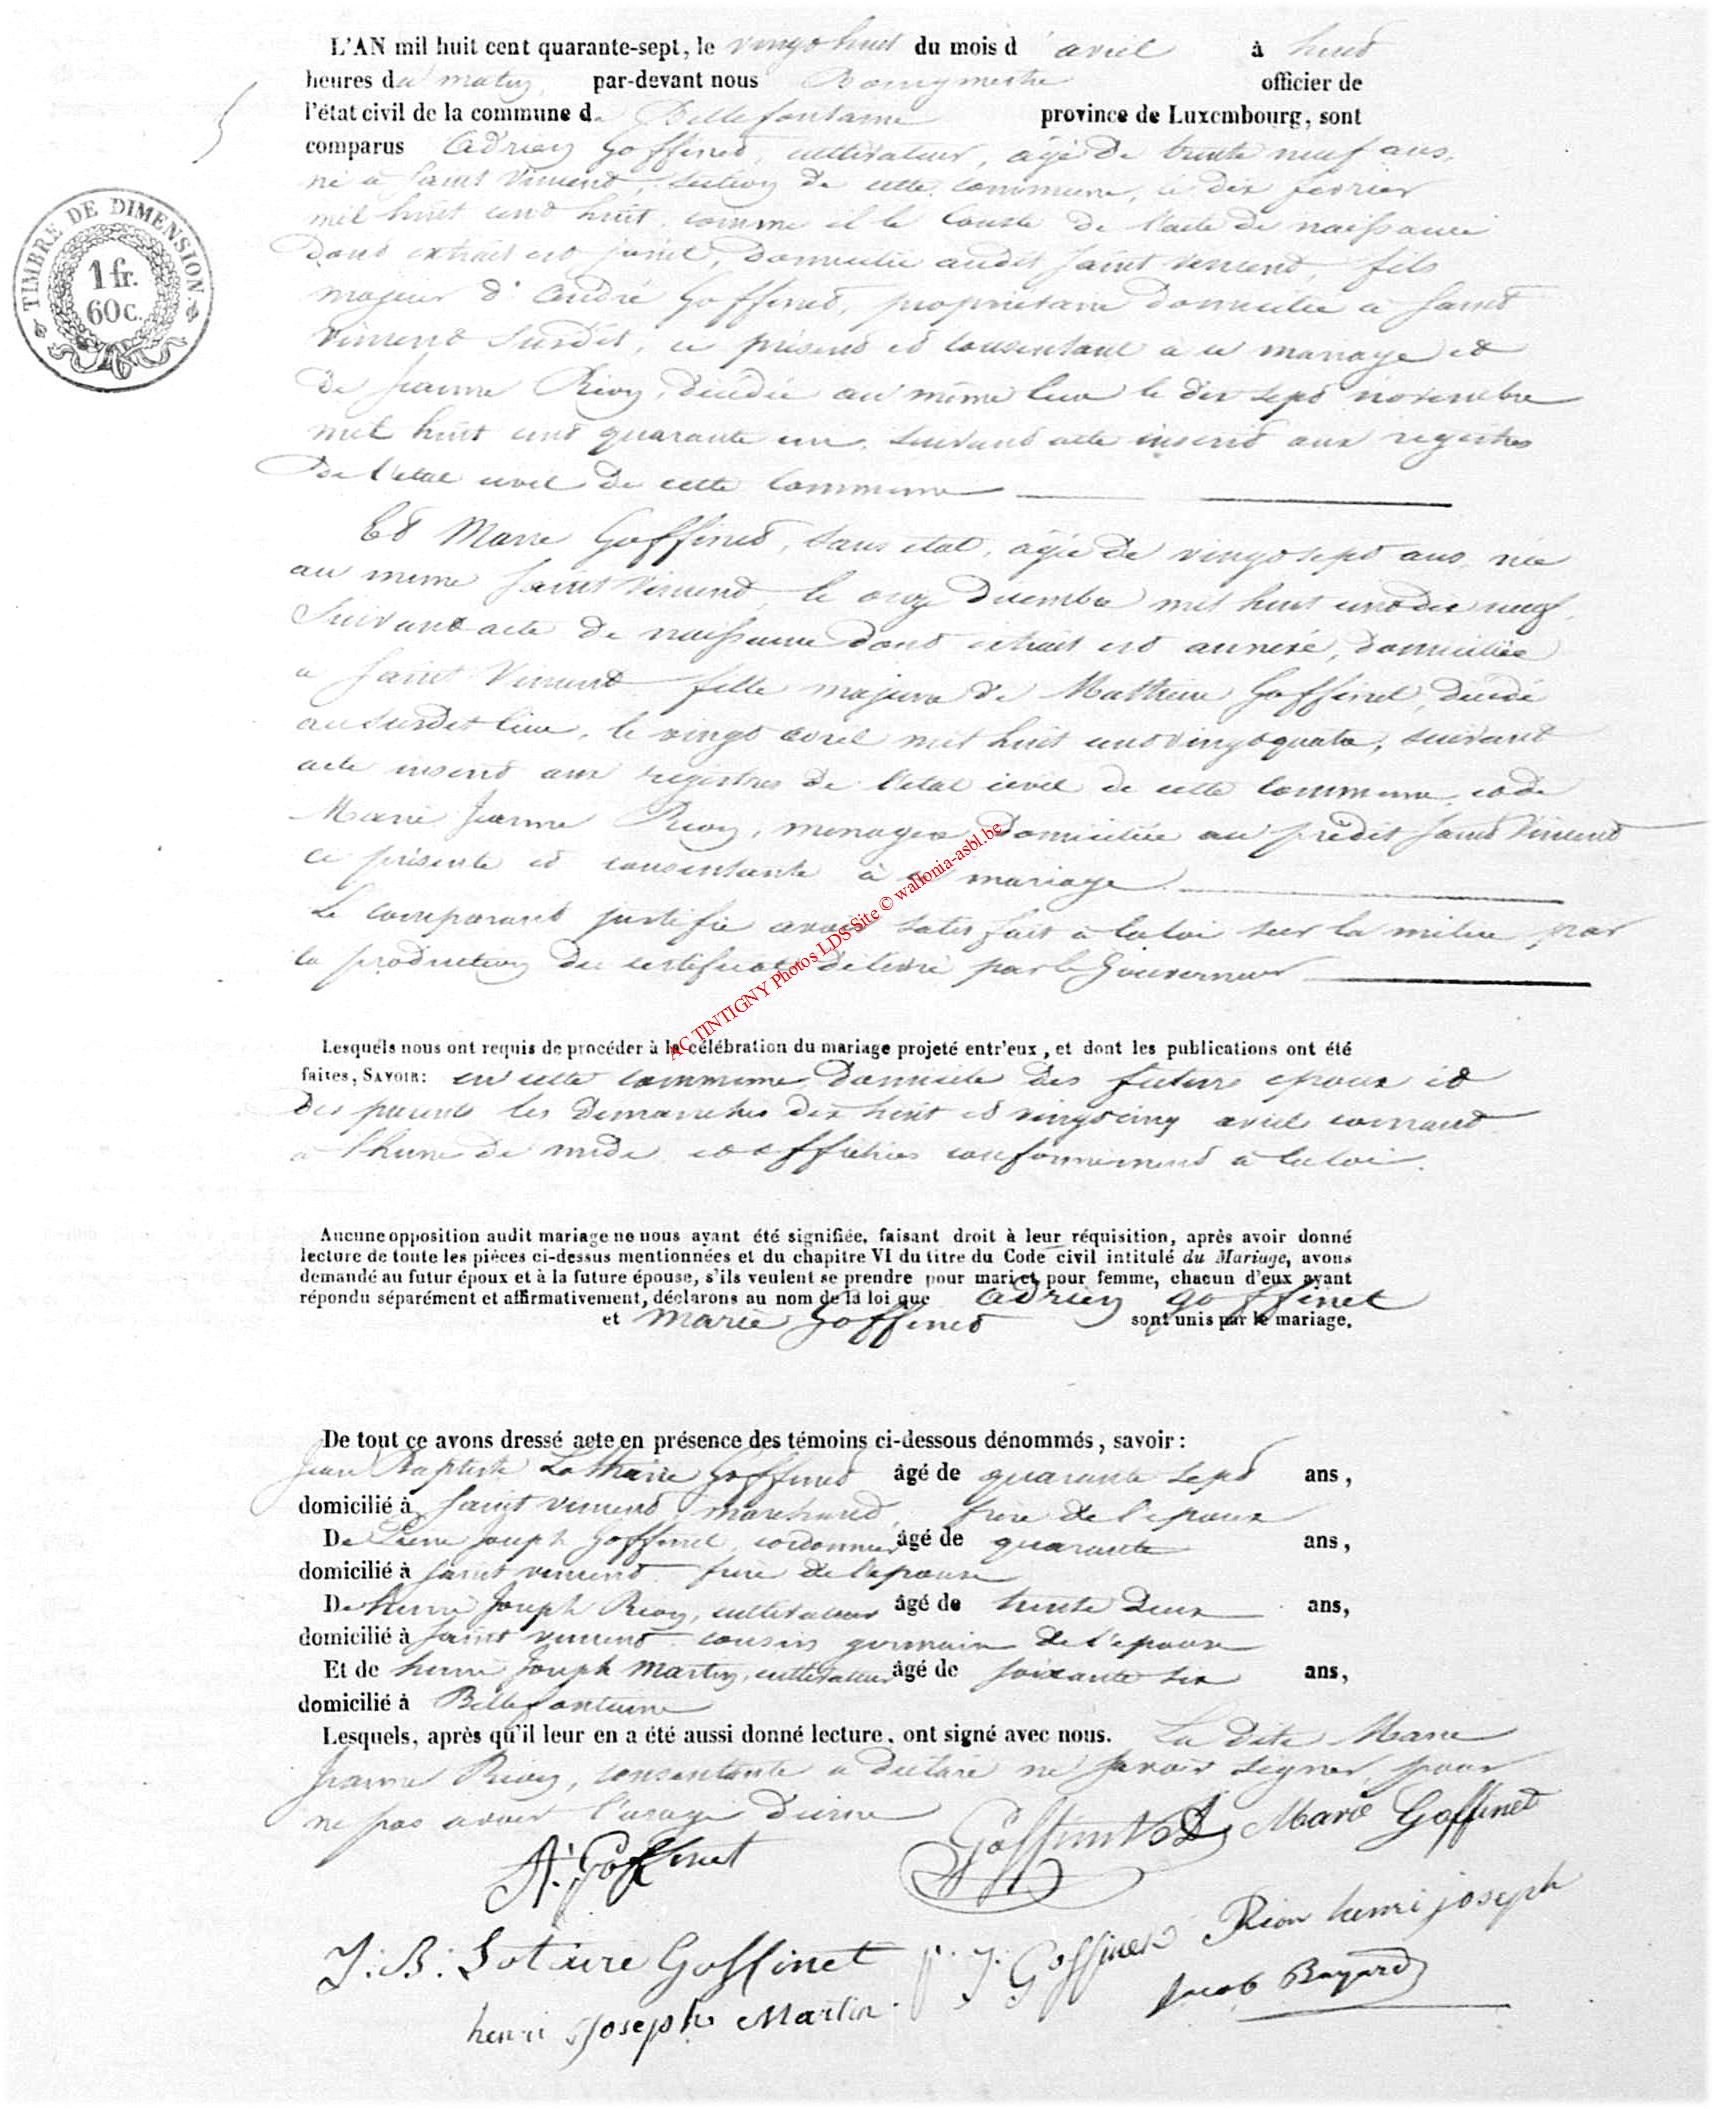 L'AN mil huit cent quarante-sept, le vingt huit du mois d'avril à huit
heures du matin, par-devant nous Bourgmestre officier de
l'état civil de la commune de Bellefontaine province de Luxembourg, sont
comparus Adrien Goffinet, cultivateur, âgé de trente neuf ans,
né à Saint Vincent, section de cette commune, le dix fevrier
mil huit cent huit, comme il le conste de l'acte de naissance
dont extrait est joint, domicilié audit Saint Vincent, fils
majeur d'André Goffinet, propriétaire domicilié à Saint
Vincent susdit, ci présent et consentant à ce mariage et
de Jeanne Rion, décédée au même lieu le dix sept novembre
mil huit cent quarante un, suivant acte inscrit aux registres
de l'état civil de cette commune
Et Marie Goffinet, sans état, âgée de vingt sept ans, née
au même Saint Vincent, le onze decembre mil huit cent dix neuf,
suivant acte de naissance dont extrait est annexé, domiciliée
à Saint Vincent fille majeure de Mathieu Goffinet, décédé
au susdit lieu, le vingt avril mil huit cent vingt quatre, suivant
acte inscrit aux registres de l'état civil de cette commune, et de
Marie Jeanne Rion, menagère domiciliée au prédit Saint Vincent
ci présente et consentante à ce mariage.
Le comparant justifie avoir satisfait à la loi sur la milice par
la production du certificat délivré par le Gouverneur
AC TINTIGNY Photos LDS Site © wallonia-asbl.be
Lesquels nous ont requis de procéder à la célébration du mariage projeté entr'eux, et dont les publications ont été
faites, SAVOIR: en cette commune, domicile des futurs epoux et
des parents les dimanches dix huit et vingt cinq avril courant
à l'heure de midi et affichées conformément à la loi.
Aucune opposition audit mariage ne nous ayant été signifiée, faisant droit à leur réquisition, après avoir donné
lecture de toute les pièces ci-dessus mentionnées et du chapitre VI du titre du Code civil intitulé du Mariage, avons
demandé au futur époux et à la future épouse, s'ils veulent se prendre pour mari et pour femme, chacun d'eux ayant
répondu séparément et affirmativement, déclarons au nom de la loi que Adrien Goffinet
et Marie Goffinet sont unis par le mariage.
De tout ce avons dressé acte en présence des témoins ci-dessous dénommés, savoir:
Jean Baptiste Lothaire Goffinet âgé de quarante sept ans,
domicilié à Saint Vincent, marchand, frère de l'epoux
De Pierre Joseph Goffinet, cordonnier âgé de quarante ans,
domicilié à Saint Vincent frère de l'epouse
De henri Joseph Rion, cultivateur âgé de trente deux ans,
domicilié à Saint Vincent cousin germain de l'epouse
Et de henri Joseph Martin, cultivateur âgé de soixante six ans,
domicilié à Bellefontaine
Lesquels, après qu'il leur en a été aussi donné lecture, ont signé avec nous. La dite Marie
Jeanne Rion, consentante a déclaré ne savoir signer, pour
ne pas avoir l'usage d'ecrire
A: Goffinet Goffinet Marie Goffinet
J: B: Lotaire Goffinet p. J: Goffinet Rion henri joseph
henri Joseph Martin. Jacob Bayard
TIMBRE DE DIMENSION.
1 fr.
60c.